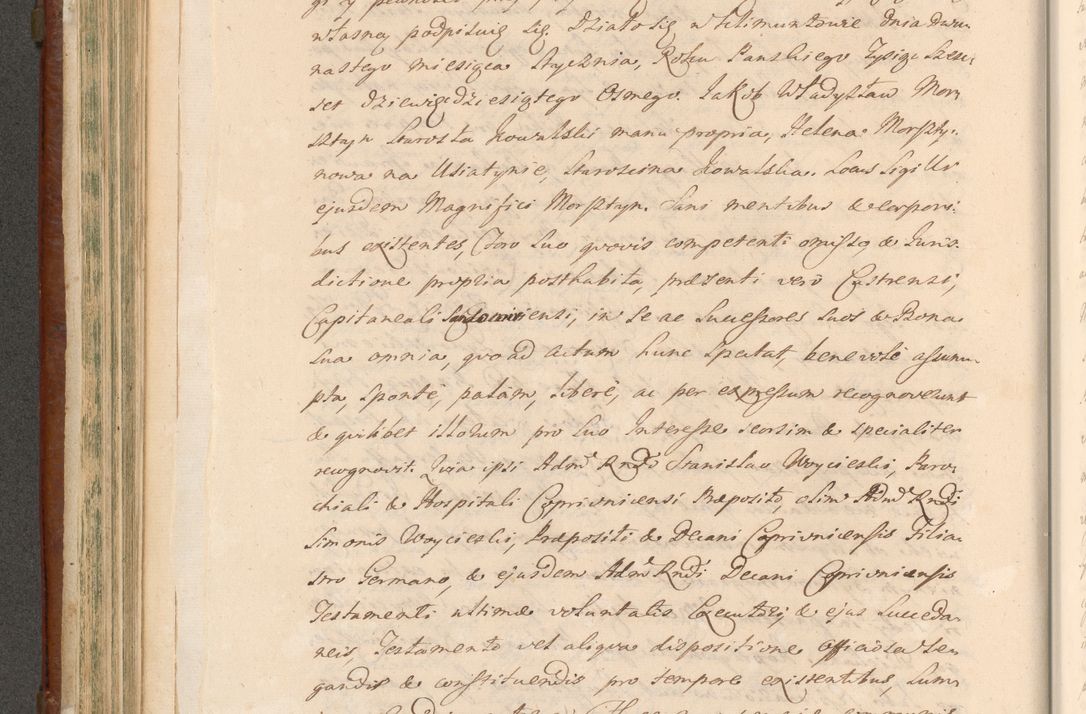 własną podpisuię się. Działo się w Klimuntowie dnia dwu-
nastego miesiąca Stycznia, Roku Pańskiego Tysiąc Szesc
set Dziewięcdziesiątego Osmego. Jakob Władysław Mor
sztyn Starosta Kowalski manu propria, Helena Morszty-
nowa na Usiatynie, Staroscina Kowalska. Locus Sigilli
ejusdem Magnifici Morsztyn. Sani mentibus & corpori-
bus existentes, Foro suo quovis competenti omisso, & Juris-
dictione propria posthabita, præsenti verò Castrensi,
Capitaneali Sandomiriensi, in se ac Successores suos & Bona
sua omnia, quo ad actum hunc spectat, benevolè assum-
pta, sponte, palam, liberè, ac per expressum recognoverunt
& quilibet illorum pro suo Interesse seorsim & specialiter
recognovit. Quia ipsi Admd Rndo Stanislao Woycieski, Paro-
chiali & Hospitali Coprivnicensi Præposito, olim Admd Rndi
Simonis Woycieski, Præpositi & Decani Coprivnicensis Filia-
stro Germano, & ejusdem Admd Rndi Decani Coprivnicensis
Testamenti ultimæ voluntatis Executori, & ejus Succeda-
neis, Testamento vel aliqua dispositione Officiosa le-
gandis & constituendis pro tempore existentibus, Sum-